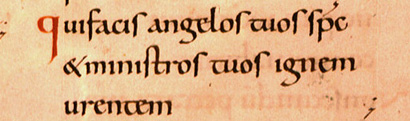 quifacis angelos tuos sp̅c
&ministros tuos ignem
urentem